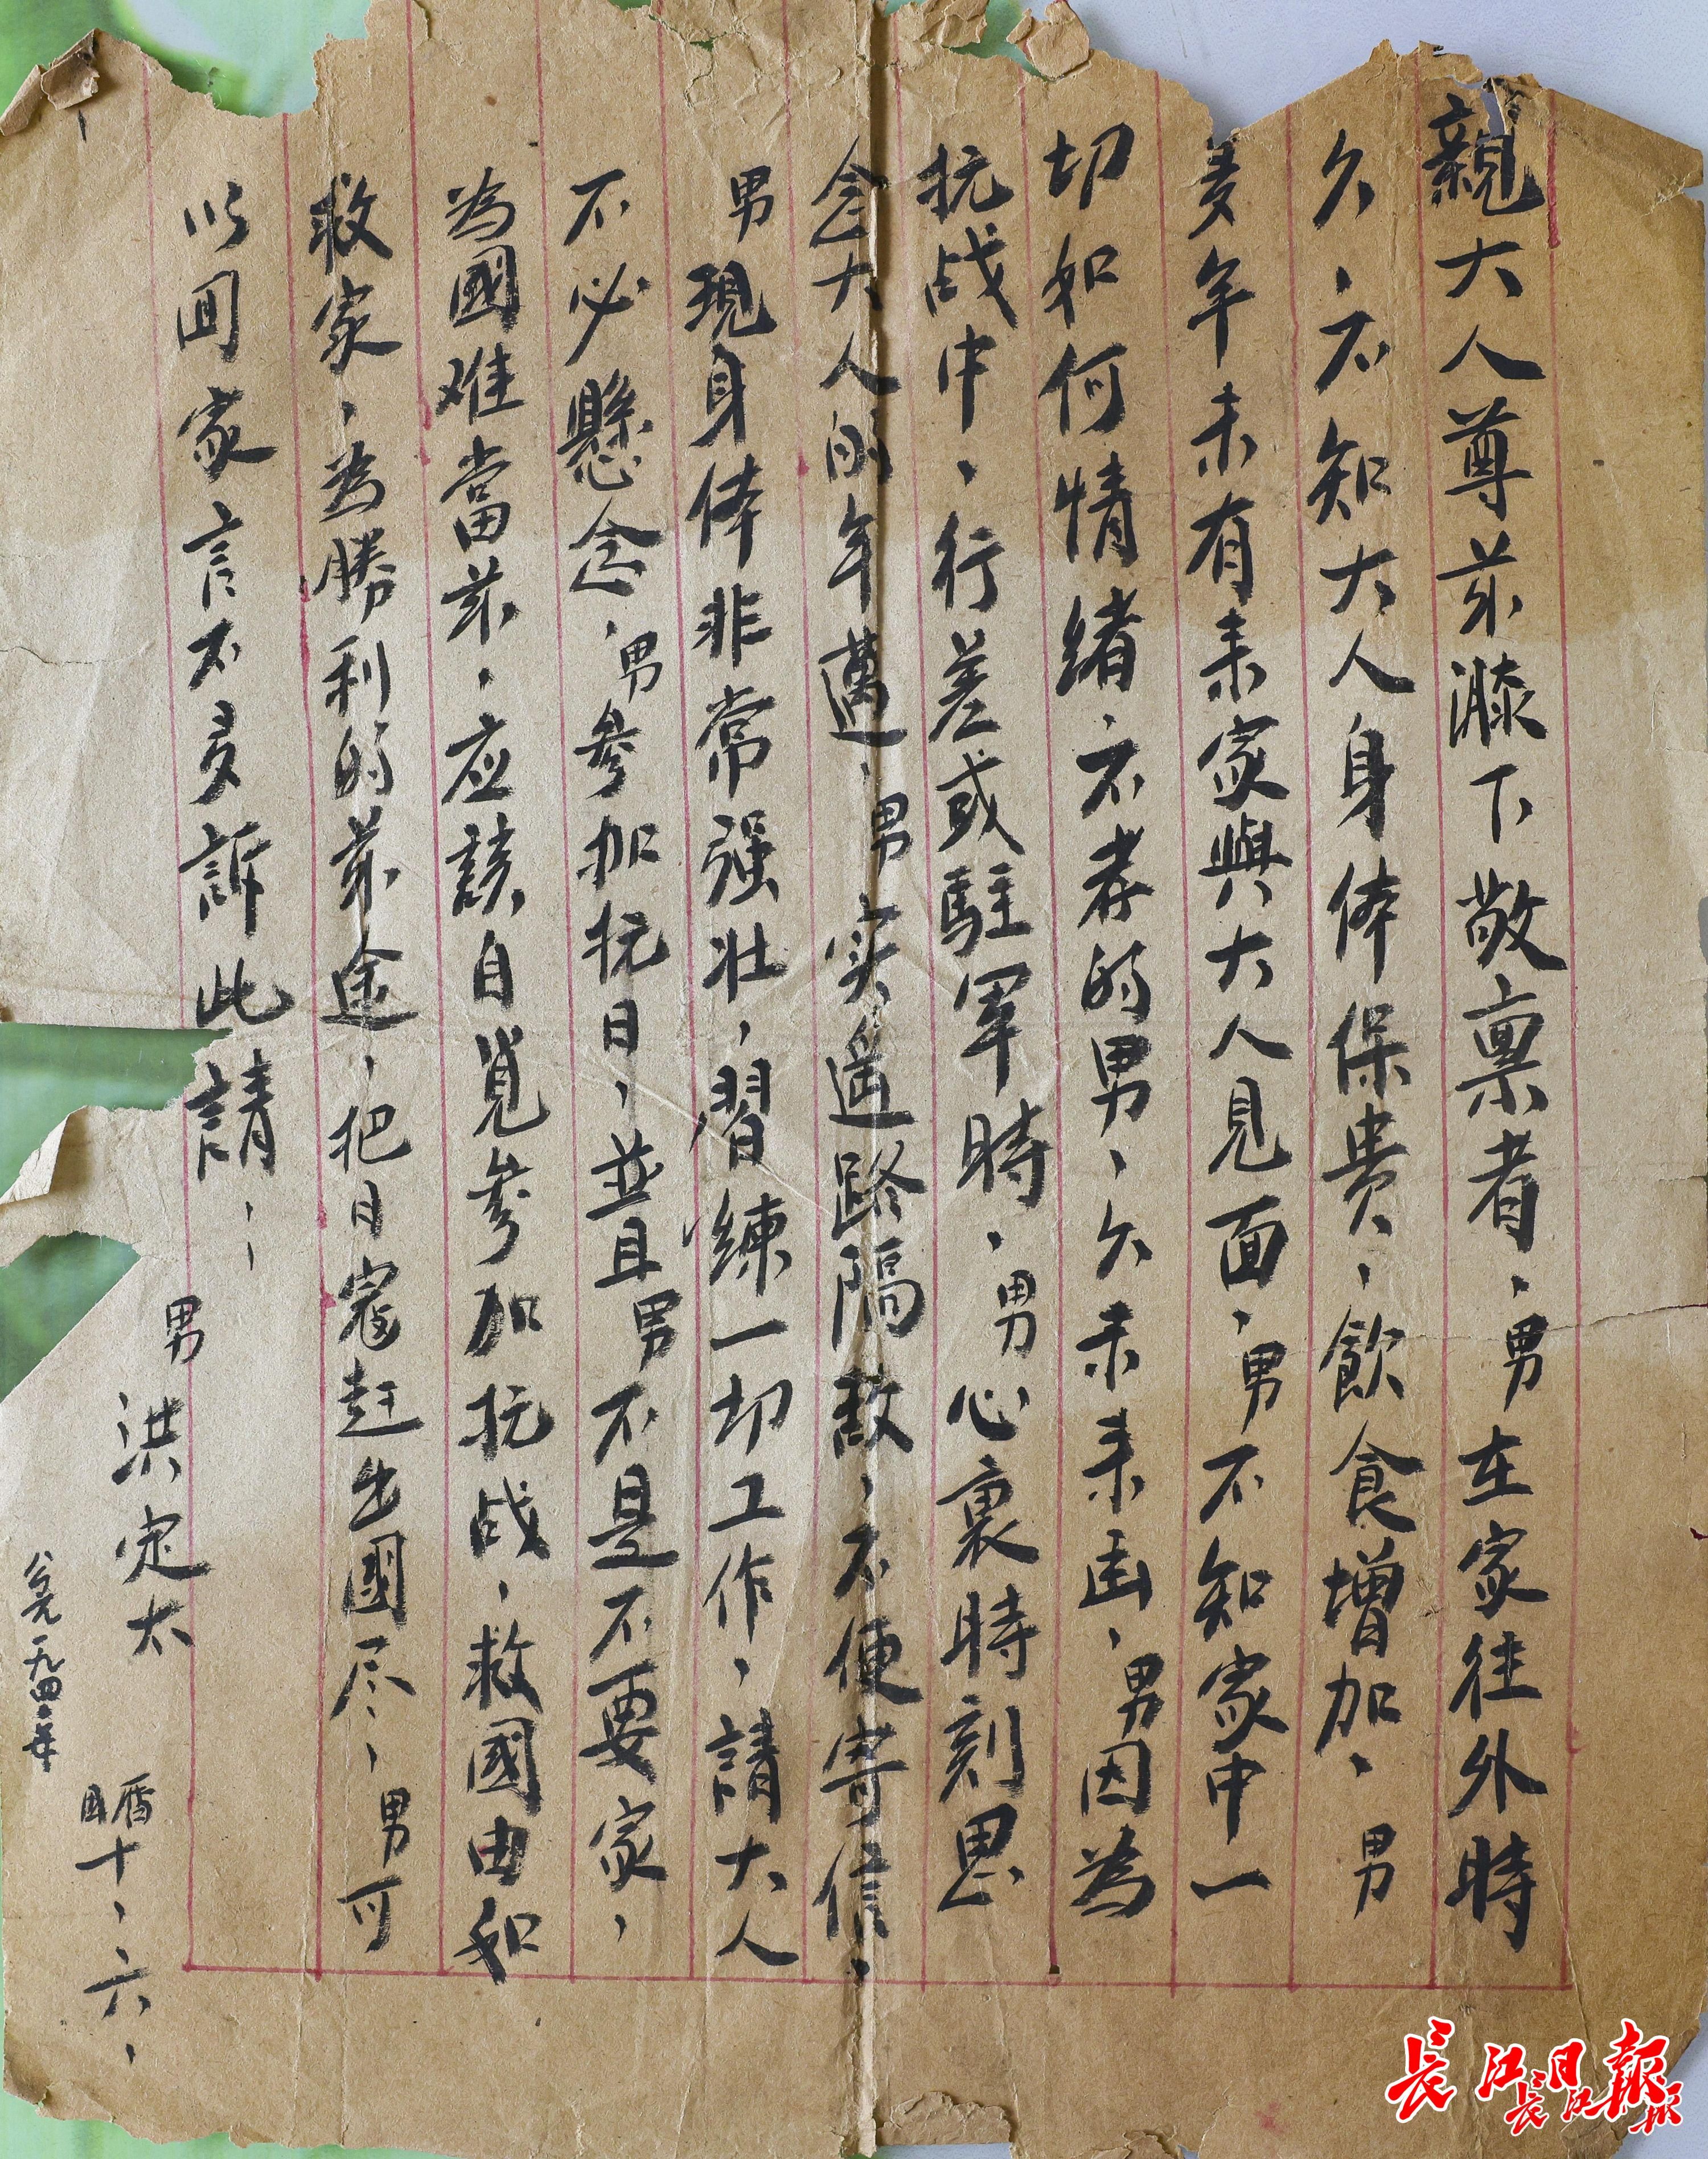 親大人尊前膝下敬禀者，男在家往外時
久，不知大人身体保贵，飲食增加，男
多年未有来家與大人見面，男不知家中一
切如何情绪，不孝的男，久未来函，男因為
抗战中，行差或駐軍時，男心裏時刻思
念大人的年邁，男实遥路隔敌，不便寄信，
男現身体非常强壮，習練一切工作，請大人
不必懸念，男参加抗日，並且男不是不要家，
為國难當前，应該自覚参加抗战，救國由如
救家，為勝利的前途，把日寇赶出國尽，男可
以囬家言不多訴此請，，
男 洪定太
公元一九四〇年
國曆十，六，
長江日报
長江日报